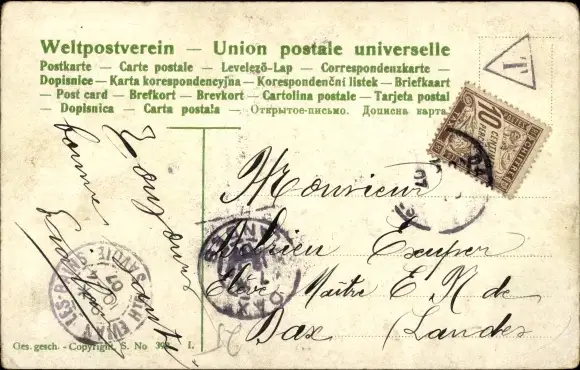 Weltpostverein — Union postale universelle
Postkarte — Carte postale — Levelező-Lap — Correspondenzkarte —
Dopisnice — Karta korespondencyjna — Korespondenční listek — Briefkaart
— Post card — Brefkort — Brevkort — Cartolina postale — Tarjeta postal
— Dopisnica — Carta postala — Открытое-письмо. Дописна карта.
T
10 CENTIMES
Monsieur
Adrien Exuper
Elève Maître E. N. de
Dax (Landes)
Toujours
bonne santé
EVIAN-LES-BAINS
SAVOIE
DAX
LANDES
Ges. gesch. - Copyright. S. No I.